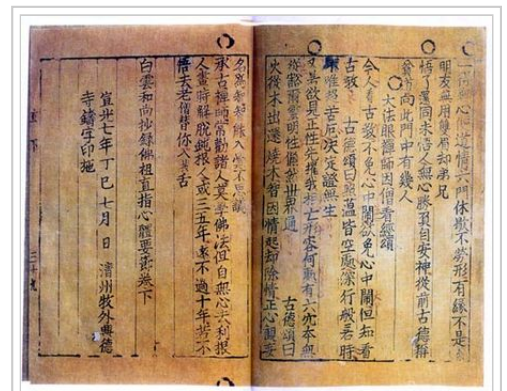 無心隨道情六門休歇不勞形有緣不是
朋友無用雙眉却弟兄
悟了還同未悟人無心勝負自安神從前古德稱
貧道向此門中有幾人
大法眼禪師因僧看經頌
今人看古教不免心中鬧欲免心中鬧但知看
古教 古德頌曰照蘊皆空處深行般若時
苦厄決定證無生
若欲見正性先 我相亡形容何處有六 本無
明性 世界通 古德頌曰
火從木出還燒木智因情起却除情正心觀妄
下
三十九
名爲智智能入空不思議
承古禪師常勸諸人莫學佛法但自無心去利根
人晝時解脫鈍根人或三五年遠不過十年若不
悟去老僧替你入 舌
白雲和尚抄錄佛祖直指心體要節卷下
宣光七年丁巳七月 日 淸州牧外興德
寺鑄字印施